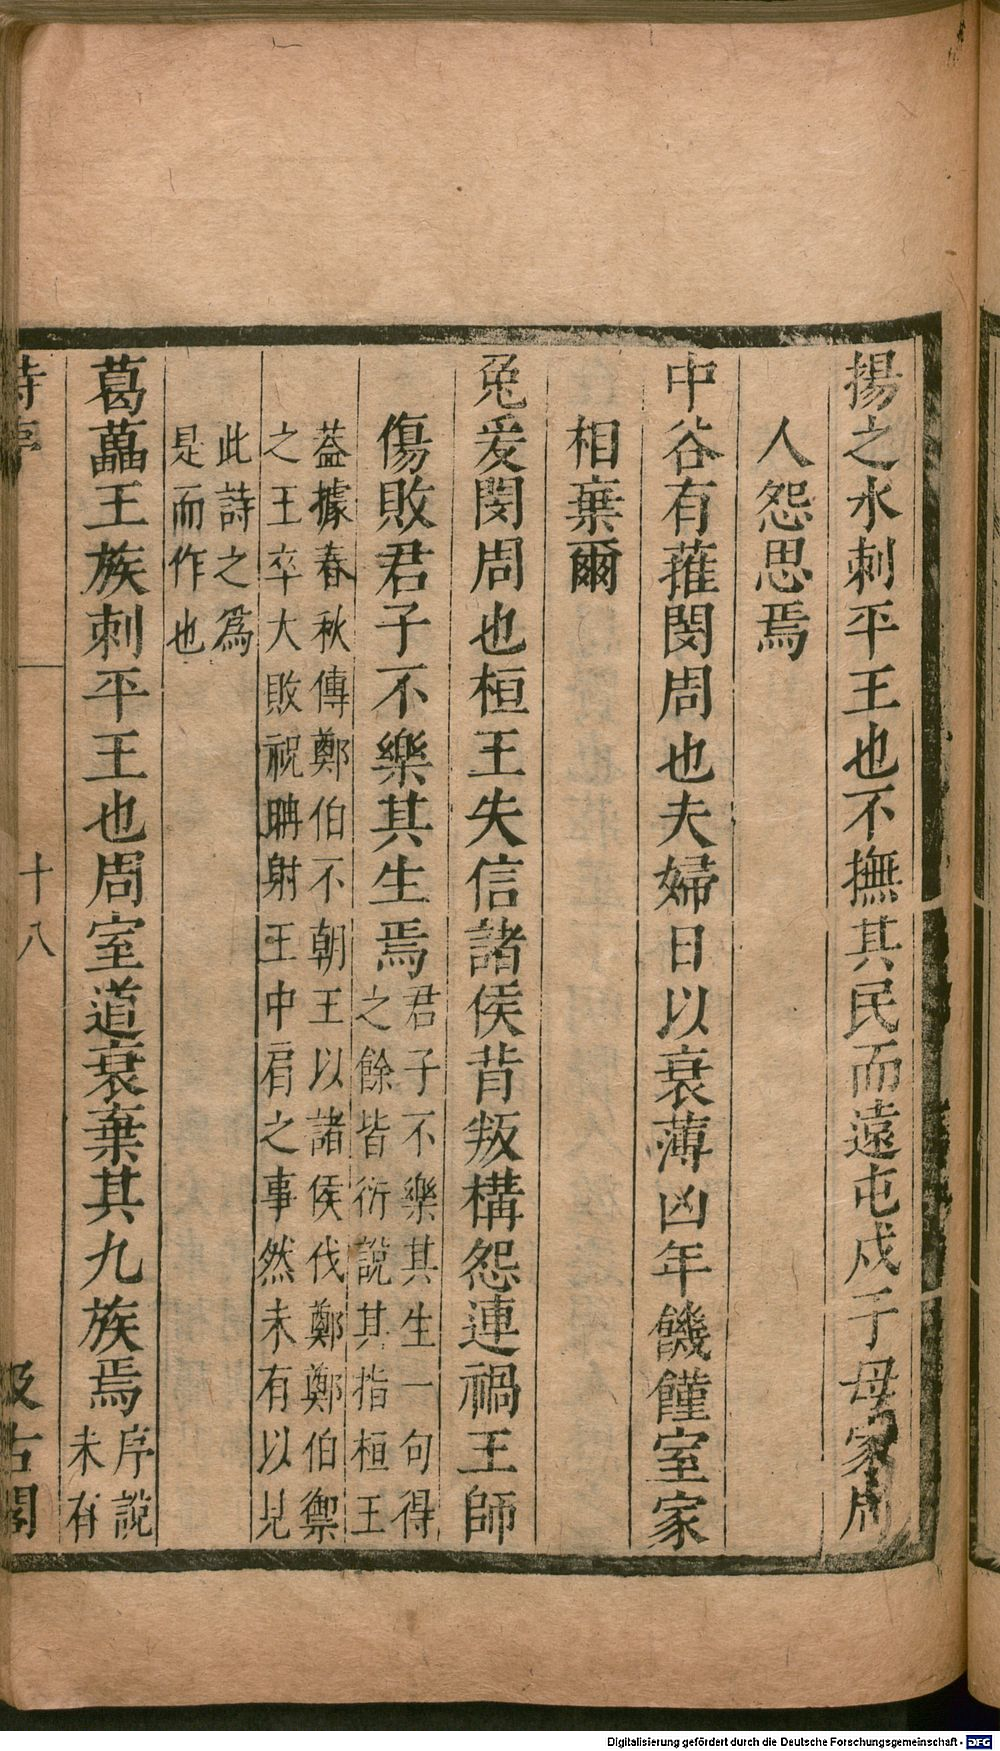 揚之水刺平王也不撫其民而遠屯戍于母家周
人怨思焉
中谷有蓷閔周也夫婦日以衰薄凶年饑饉室家
相棄爾
兔爰閔周也桓王失信諸侯背叛構怨連禍王師
傷敗君子不樂其生焉
君子不樂其生一句得
之餘皆衍說其指桓王
葢據春秋傳鄭伯不朝王以諸侯伐鄭鄭伯禦
之王卒大敗祝聃射王中肩之事然未有以見
此詩之爲
是而作也
葛藟王族刺平王也周室道衰棄其九族焉
序說
未有
詩序
十八
汲古閣
Digitalisierung gefördert durch die Deutsche Forschungsgemeinschaft - DFG